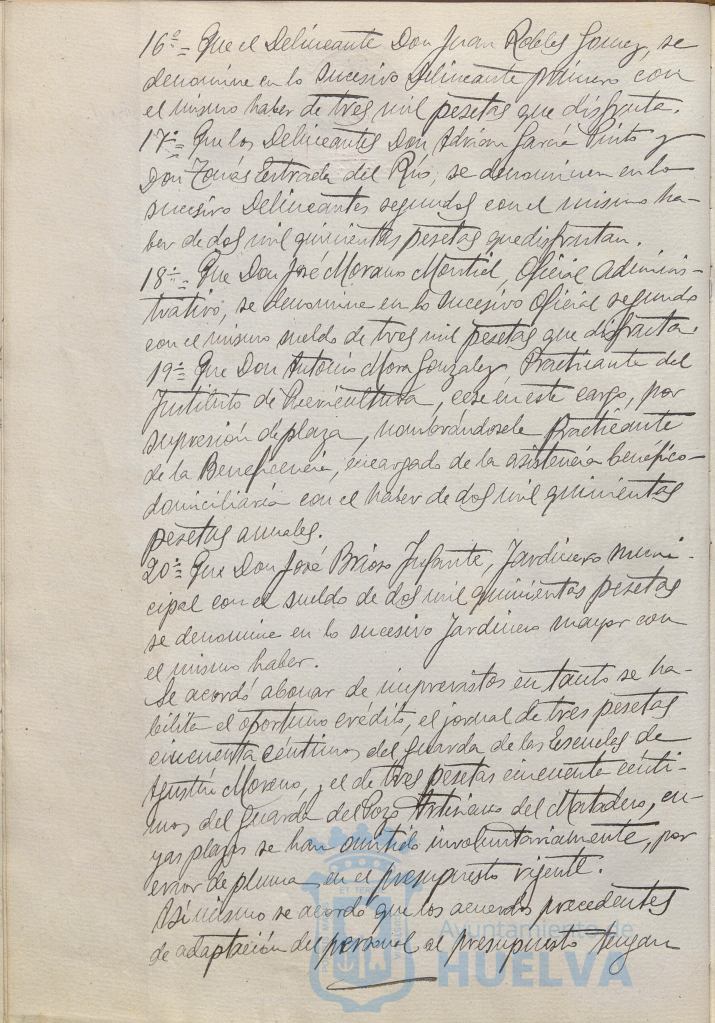 16º = Que el Delineante Don Juan Robles Gomez, se
denomine en lo sucesivo Delineante primero con
el mismo haber de tres mil pesetas que disfruta.
17º = Que los Delineantes Don Adrian Garcia Pinto y
Don Tomás Estrada del Rio, se denominen en lo
sucesivo Delineantes segundos con el mismo ha-
ber de dos mil quinientas pesetas que disfrutan.
18º = Que Don José Morano Montiel, Oficial Adminis-
trativo, se denomine en lo sucesivo Oficial segundo
con el mismo sueldo de tres mil pesetas que disfruta.
19º = Que Don Antonio Mora Gonzalez, Practicante del
Instituto de Puericultura, cese en este cargo, por
supresión de plaza, nombrándosele Practicante
de la Beneficencia, encargado de la asistencia benéfico-
domiciliaria con el haber de dos mil quinientas
pesetas anuales.
20º = Que Don José Brioso Infante, Jardinero muni-
cipal con el sueldo de dos mil quinientas pesetas
se denomine en lo sucesivo Jardinero mayor con
el mismo haber.
Se acordó abonar de imprevistos en tanto se ha-
bilita el oportuno crédito, el jornal de tres pesetas
cincuenta céntimos del Guarda de las Escuelas de
Agustín Moreno, y el de tres pesetas cincuenta cénti-
mos del Guarda del Pozo Artesiano del Matadero, cu-
yas plazas se han omitido involuntariamente, por
error de pluma, en el presupuesto vigente.
Asimismo se acordó que los acuerdos precedentes
de adaptación del personal al presupuesto tengan
Ayuntamiento de
HUELVA